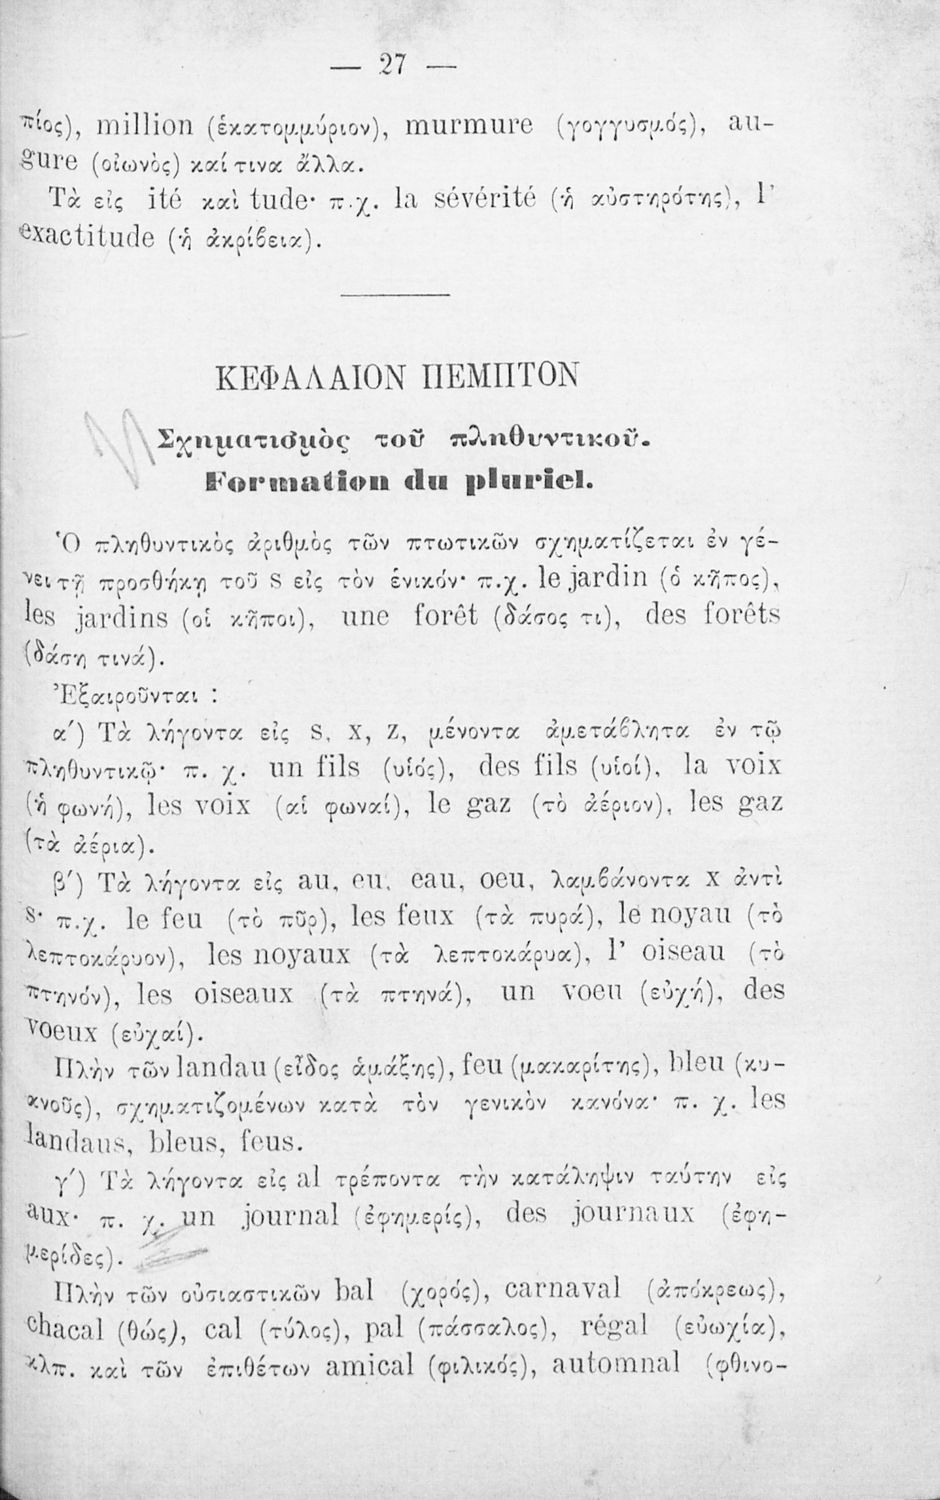 — 27 —
πίος), million (ἑκατομμύριον), murmure (γογγυσμός), au-
gure (οἰωνὸς) καί τινα ἄλλα.
Τὰ εἰς ité καὶ tude· π.χ. la sévérité (ἡ αὐστηρότης), l'
exactitude (ἡ ἀκρίβεια).
ΚΕΦΑΛΑΙΟΝ ΠΕΜΠΤΟΝ
Σχηματισμὸς τοῦ πληθυντικοῦ.
Formation du pluriel.
Ὁ πληθυντικὸς ἀριθμὸς τῶν πτωτικῶν σχηματίζεται ἐν γέ-
νει τῇ προσθήκῃ τοῦ s εἰς τὸν ἑνικόν· π.χ. le jardin (ὁ κῆπος),
les jardins (οἱ κῆποι), une forêt (δάσος τι), des forêts
(δάση τινά).
Ἐξαιροῦνται :
α') Τὰ λήγοντα εἰς s, x, z, μένοντα ἀμετάβλητα ἐν τῷ
πληθυντικῷ· π. χ. un fils (υἱός), des fils (υἱοί), la voix
(ἡ φωνή), les voix (αἱ φωναί), le gaz (τὸ ἀέριον), les gaz
(τὰ ἀέρια).
β') Τὰ λήγοντα εἰς au, eu, eau, oeu, λαμβάνοντα x ἀντὶ
s· π.χ. le feu (τὸ πῦρ), les feux (τὰ πυρά), le noyau (τὸ
λεπτοκάρυον), les noyaux (τὰ λεπτοκάρυα), l' oiseau (τὸ
πτηνόν), les oiseaux (τὰ πτηνά), un voeu (εὐχή), des
voeux (εὐχαί).
Πλὴν τῶν landau (εἶδος ἁμάξης), feu (μακαρίτης), bleu (κυ-
ανοῦς), σχηματιζομένων κατὰ τὸν γενικὸν κανόνα· π. χ. les
landaus, bleus, feus.
γ') Τὰ λήγοντα εἰς al τρέποντα τὴν κατάληψιν ταύτην εἰς
aux· π. χ. un journal (ἐφημερίς), des journaux (ἐφη-
μερίδες).
Πλὴν τῶν οὐσιαστικῶν bal (χορός), carnaval (ἀπόκρεως),
chacal (θώς), cal (τύλος), pal (πάσσαλος), régal (εὐωχία),
κλπ. καὶ τῶν ἐπιθέτων amical (φιλικός), automnal (φθινο-